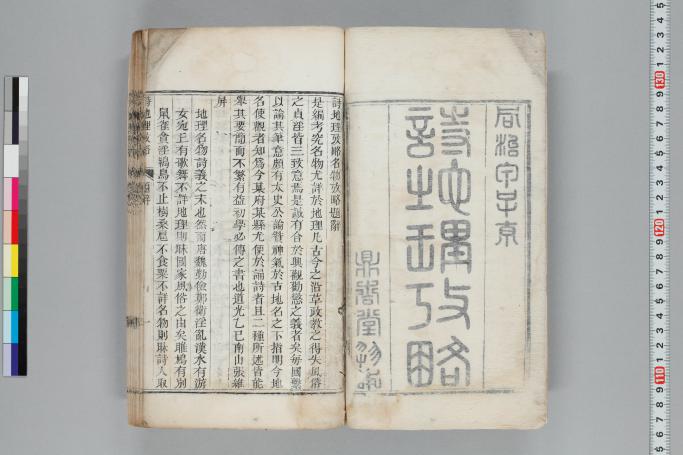 同治
詩地理攷略
詩地理攷略名物攷略題辭
是編考究名物尤詳於地理凡古今之沿革政教之得失風俗
之貞淫皆三致意焉是誠有合於興觀勸懲之義者矣毎國繫
以論其筆意頗有太史公論贊神氣於古地名之下指明今地
名使觀者知為今某府某縣尤便於誦詩者且二種所述皆能
舉其要簡而不繁有益初學必傳之書也道光乙巳南山張維
屏
地理名物詩義之末也然而唐魏勤儉鄭衛淫亂漢水有游
女宛丘有歌舞不詳地理則昧國家風俗之由矣雎鳩有別
鼠雀貪淫鴇鳥不止樹桑扈不食粟不詳名物則昧詩人取